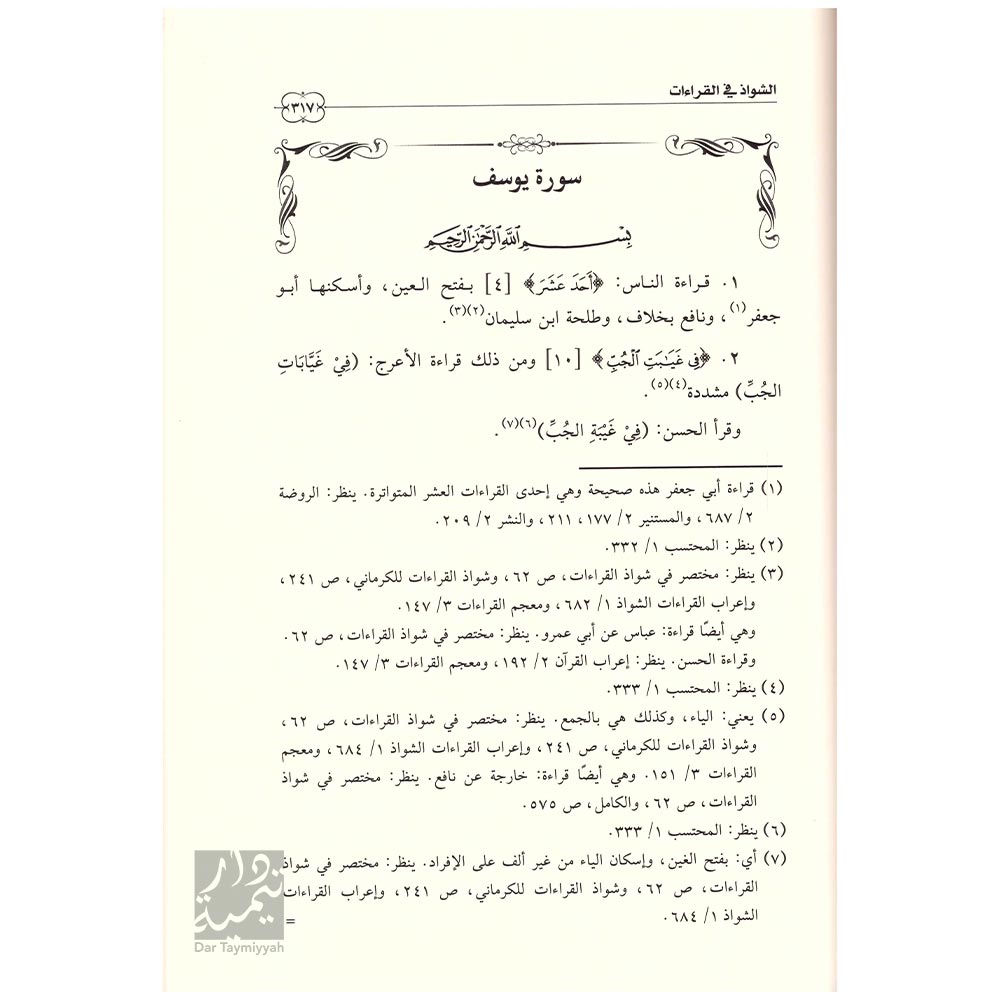 الشواذ في القراءات
٣١٧
سورة يوسف
بِسْمِ اللَّهِ الرَّحْمَٰنِ الرَّحِيمِ
١. قراءة الناس: ﴿أَحَدَ عَشَرَ﴾ [٤] بفتح العين، وأسكنها أبو
جعفر(١)، ونافع بخلاف، وطلحة ابن سليمان(٢)(٣).
٢. ﴿فِي غَيَٰبَتِ ٱلْجُبِّ﴾ [١٠] ومن ذلك قراءة الأعرج: (فِيْ غَيَّابَاتِ
الجُبِّ) مشددة(٤)(٥).
وقرأ الحسن: (فِيْ غَيْبَةِ الجُبِّ)(٦)(٧).
(١) قراءة أبي جعفر هذه صحيحة وهي إحدى القراءات العشر المتواترة. ينظر: الروضة
٢/ ٦٨٧، والمستنير ٢/ ١٧٧، ٢١١، والنشر ٢/ ٢٠٩.
(٢) ينظر: المحتسب ١/ ٣٣٢.
(٣) ينظر: مختصر في شواذ القراءات، ص ٦٢، وشواذ القراءات للكرماني، ص ٢٤١،
وإعراب القراءات الشواذ ١/ ٦٨٢، ومعجم القراءات ٣/ ١٤٧.
وهي أيضًا قراءة: عباس عن أبي عمرو. ينظر: مختصر في شواذ القراءات، ص ٦٢.
وقراءة الحسن. ينظر: إعراب القرآن ٢/ ١٩٢، ومعجم القراءات ٣/ ١٤٧.
(٤) ينظر: المحتسب ١/ ٣٣٣.
(٥) يعني: الياء، وكذلك هي بالجمع. ينظر: مختصر في شواذ القراءات، ص ٦٢،
وشواذ القراءات للكرماني، ص ٢٤١، وإعراب القراءات الشواذ ١/ ٦٨٤، ومعجم
القراءات ٣/ ١٥١. وهي أيضًا قراءة: خارجة عن نافع. ينظر: مختصر في شواذ
القراءات، ص ٦٢، والكامل، ص ٥٧٥.
(٦) ينظر: المحتسب ١/ ٣٣٣.
(٧) أي: بفتح الغين، وإسكان الياء من غير ألف على الإفراد. ينظر: مختصر في شواذ
القراءات، ص ٦٢، وشواذ القراءات للكرماني، ص ٢٤١، وإعراب القراءات
الشواذ ١/ ٦٨٤.
=
دار تيمية
Dar Taymiyyah